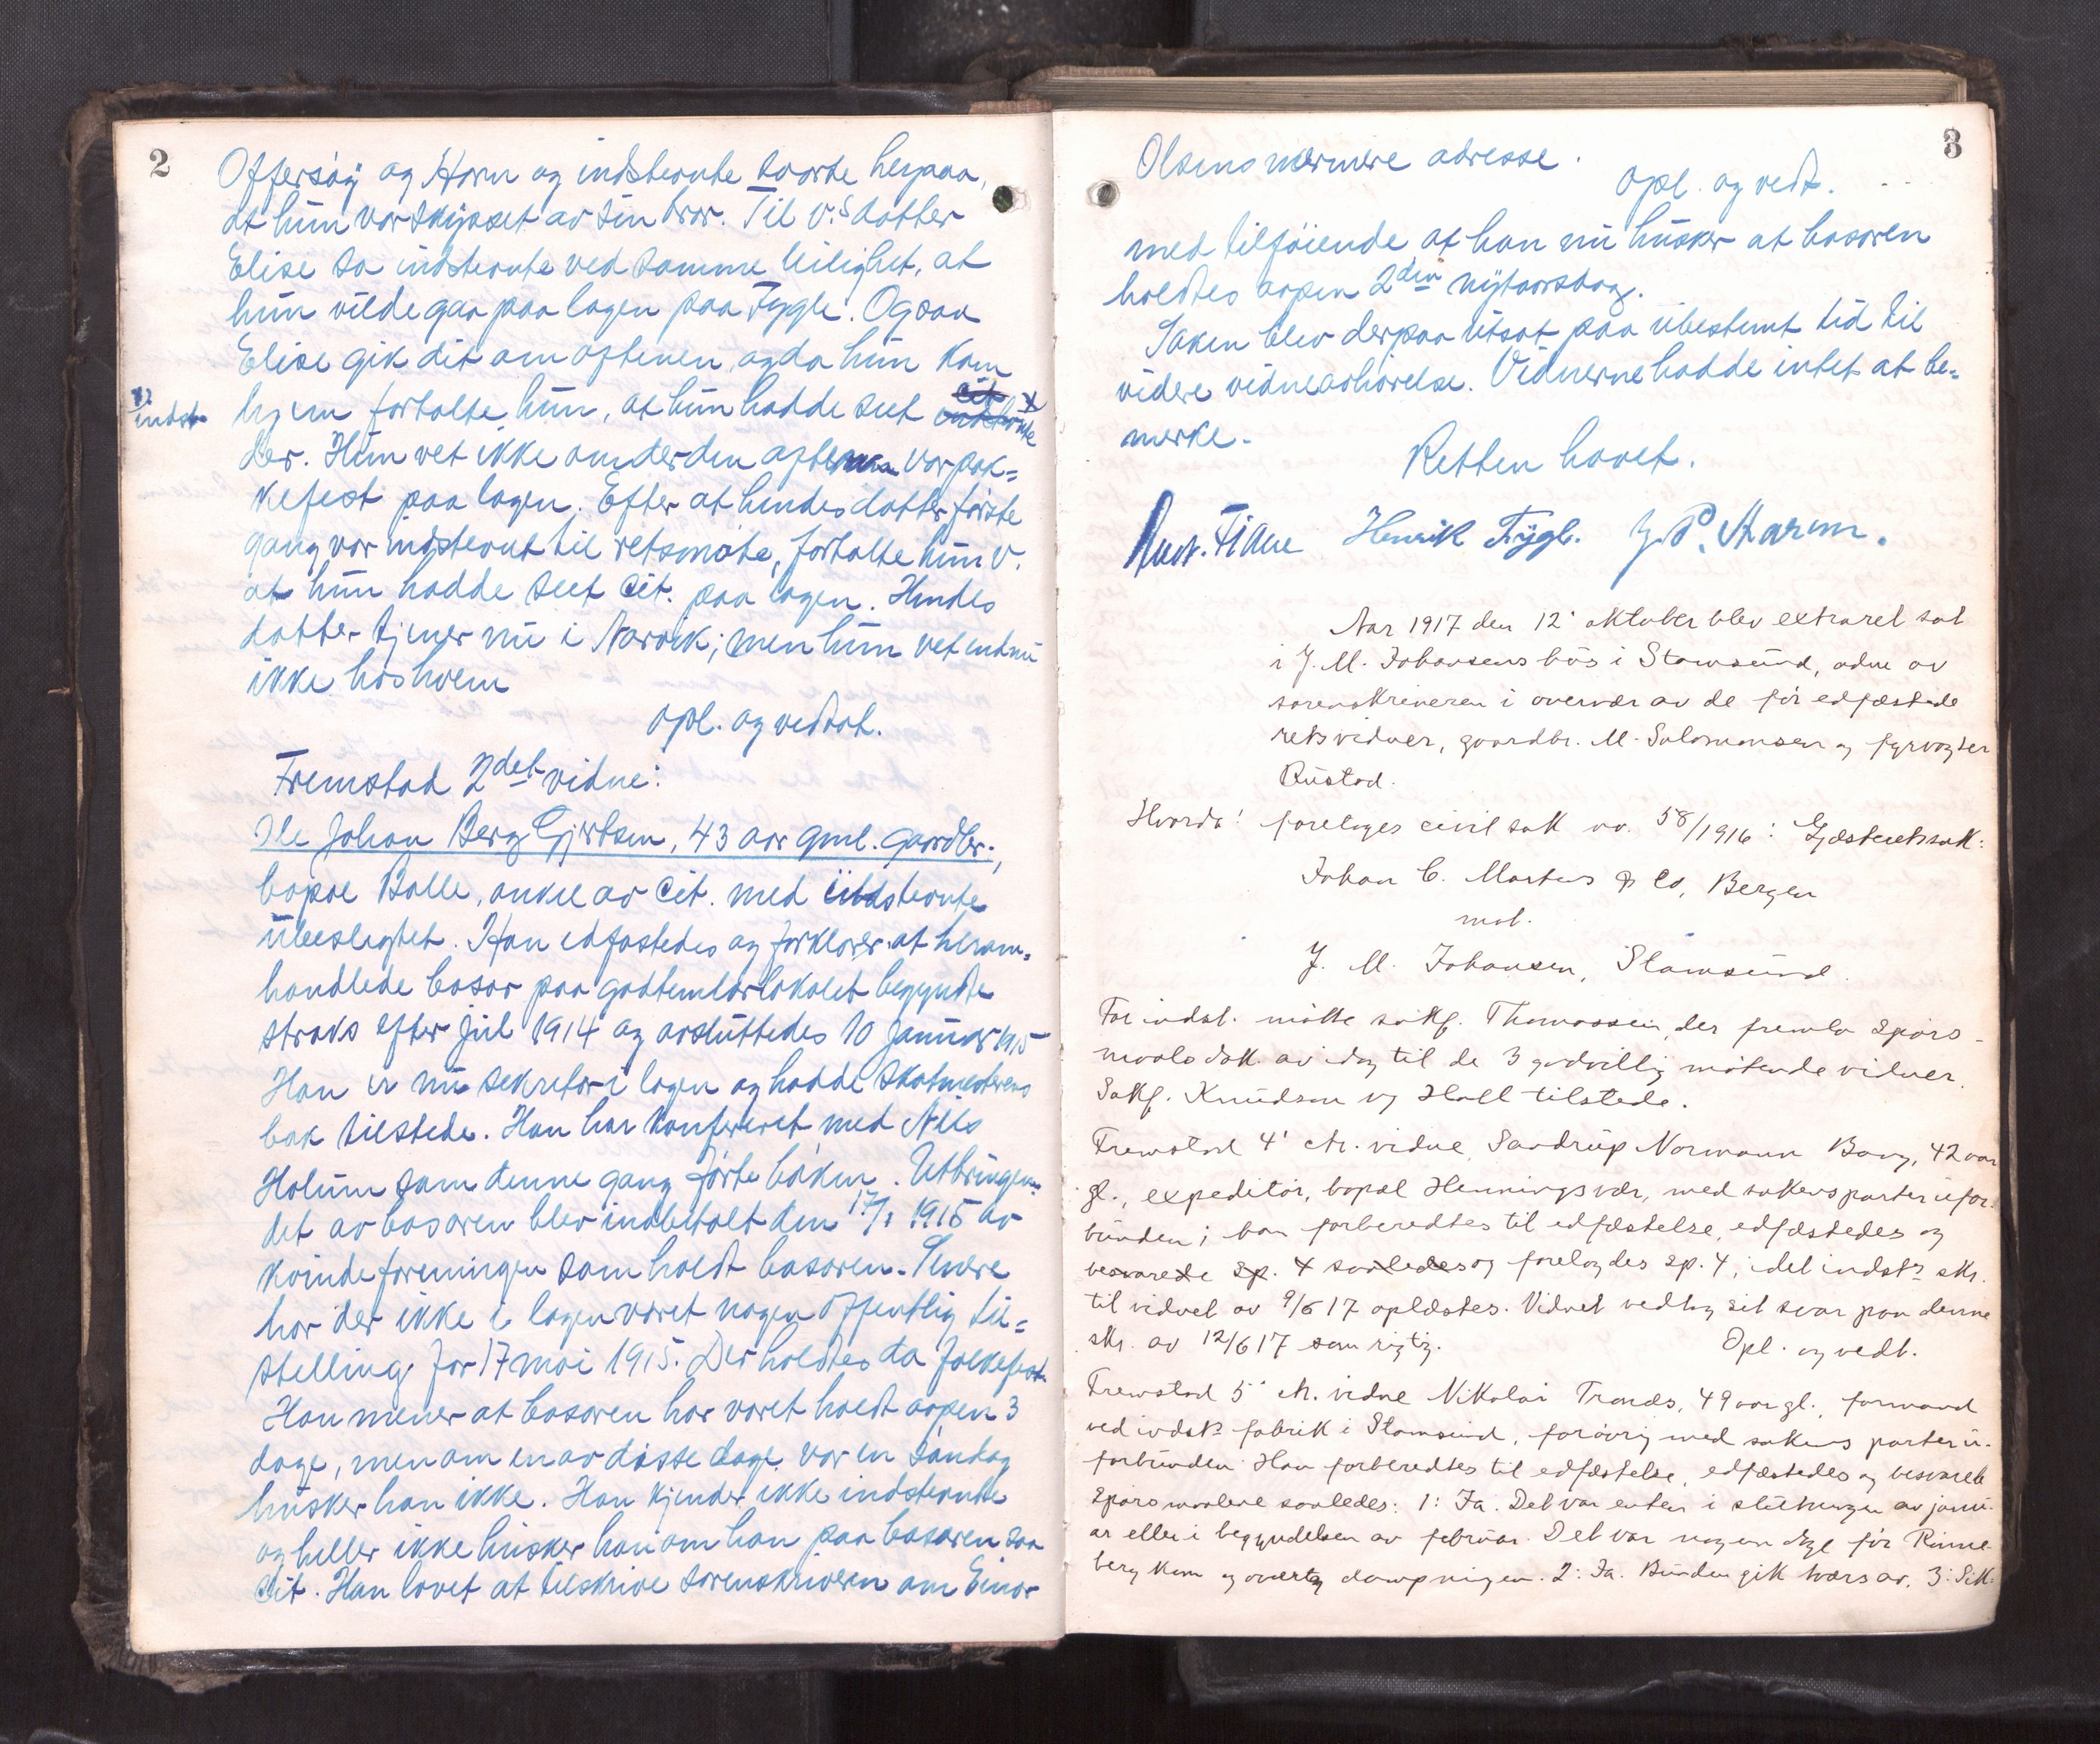 2
Offersøy og Horn og indstevnte svarte herpaa,
at hun var skysset av sin bror. Til v.s datter
Elise sa indstevnte ved samme leilighet, at
hun vilde gaa paa logen paa Fygle. Ogsaa
Elise gik dit om aftenen, og da hun kom
hjem fortalte hun, at hun hadde seet cit. indstevnte x
x indst.
der. Hun vet ikke om der den aftenen var pak=
kefest paa logen. Efter at hendes datter første
gang var indstevnt til retsmøte, fortalte hun v.
at hun hadde seet cit. paa logen. Hendes
datter tjener nu i Narvik; men hun vet endnu
ikke hos hvem
opl. og vedtat.
Fremstod 2det vidne:
Ole Johan Berg Gjertsen, 43 aar gml. gaardbr.,
bopæl Bolle, onkel av cit. med indstevnte
ubeslegtet. Han edfæstedes og forklarer at herom=
handlede basar paa godtemlarlokalet begyndte
straks efter jul 1914 og avsluttedes 10 januar 1915
Han er nu sekretær i logen og hadde skatmesterens
bok tilstede. Han har konfereret med Nils
Holum som denne gang førte boken. Utbringen=
det av basaren blev indbetalt den 17/1 1915 av
kvindeforeningen som holdt basaren. Senere
har der ikke i logen været nogen offentlig til=
stelling før 17 mai 1915. Der holdtes da folkefest.
Han mener at basaren har været holdt aapen 3
dage, men om en av disse dage var en søndag
husker han ikke. Han kjender ikke indstevnte
og heller ikke husker han om han paa basaren saa
cit. Han lovet at tilskrive sorenskriveren om Einar
3
Olsens nærmere adresse.
opl. og vedt.
med tilføiende at han nu husker at basaren
holdtes aapen 2den nytaarsdag.
Saken blev derpaa utsat paa ubestemt tid til
videre vidneavhørelse. Vidnerne hadde intet at be=
merke.
Retten hævet.
Henrik Fygle. J. P. Storm.
Aar 1917 den 12' oktober blev extraret sat
i J. M. Johansens hus i Stamsund, adm av
sorenskriveren i overvær av de før edfæstede
retsvidner, gaardbr. M. Salomonsen og fyrvogter
Rustad.
Hvorda: foretoges civil sak nr. 58/1916: Gjæsteretssak:
Johan C. Martens & Co, Bergen
mot.
J. M. Johansen, Stamsund.
For indst. møtte sakf. Thomassen, der fremla spørs-
maalsdok. av idag til de 3 godvillig møtende vidner.
Sakf. Knudsen og Hall tilstede.
Fremstod 4' ctr. vidne Sandrup Normann Bang, 42 aar
gl., expeditør, bopæl Henningsvær, med sakens parter ufor-
bunden; han forberedtes til edfæstelse, edfæstedes og
besvarede sp. 4 saaledes og forelagdes sp. 4, idet indsts skr.
til vidnet av 9/6 17 oplæstes. Vidnet vedtog sit svar paa denne
skr. av 12/6 17 som rigtig.
Opl. og vedt.
Fremstod 5' ctr. vidne Nikolai Tronds, 49 aar gl., formand
ved indsts fabrik i Stamsund, forøvrig med sakens parter u-
forbunden. Han forberedtes til edfæstelse, edfæstedes og besvarede
spørsmaalene saaledes: 1: Ja. Det var enten i slutningen av janu-
ar eller i begyndelsen av februar. Det var nogen dage før Rinne-
berg kom og overtog dampningen. 2: Ja. Bunden gik tværs av. 3: Sik-